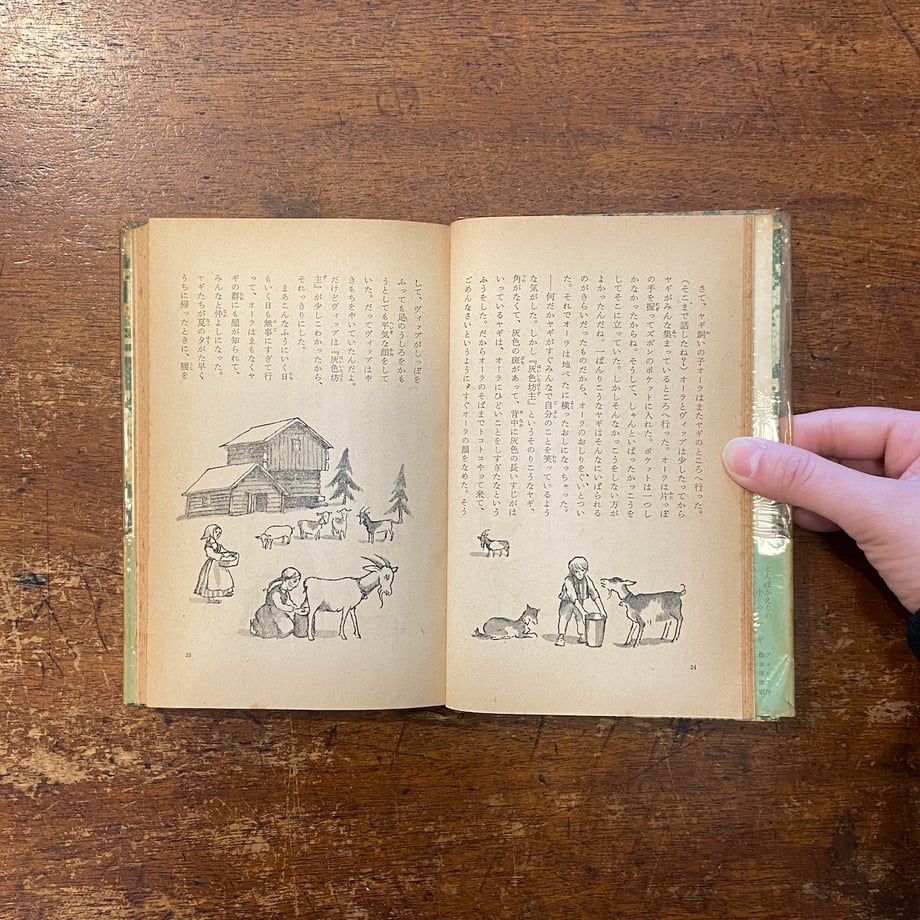 さて、ヤギ飼いの子オーラはまたヤギのところへ行った。
(そこまで話したね？)オーラとヴィップは少したってから
ヤギがみんな集まっているところへ行った。オーラは片っぽ
の手を握ってズボンのポケットに入れた。ポケットは一つし
かなかったからね。そうして、しゃんといばったかっこうを
してそこに立っていた。しかしそんなかっこうをしない方が
よかったんだね。一ばんりこうなヤギはそんなにいばられる
のがきらいだったものだから、オーラのおしりをぐいとつい
た。それでオーラは地べたに横ったおしになっちゃった。
――何だかヤギがすぐみんなで自分のことを笑っているよう
な気がした。しかし『灰色坊主』というそのりこうなヤギ、
角がなくて、灰色の斑があって、背中に灰色の長いすじがは
いっているヤギは、オーラにひどいことをしすぎたなという
ふうをした。だからオーラのそばまでトコトコやって来て、
ごめんなさいというように、すぐオーラの顔をなめた。そう
24
して、ヴィップがしっぽを
ふっても足のうしろをかも
うとしても平気な顔をして
いた。だってヴィップはや
きもちをやいていたんだよ。
だけどヴィップは『灰色坊
主』が少しこわかったから、
それっきりにした。
まあこんなふうにいく日
もいく日も無事にすぎて行
って、オーラはまもなくヤ
ギの群にも顔が知られて、
みんなと仲よしになった。
ヤギたちが夏の夕がた早く
うちに帰ったときに、腰を
25
とんぼがえりの
小